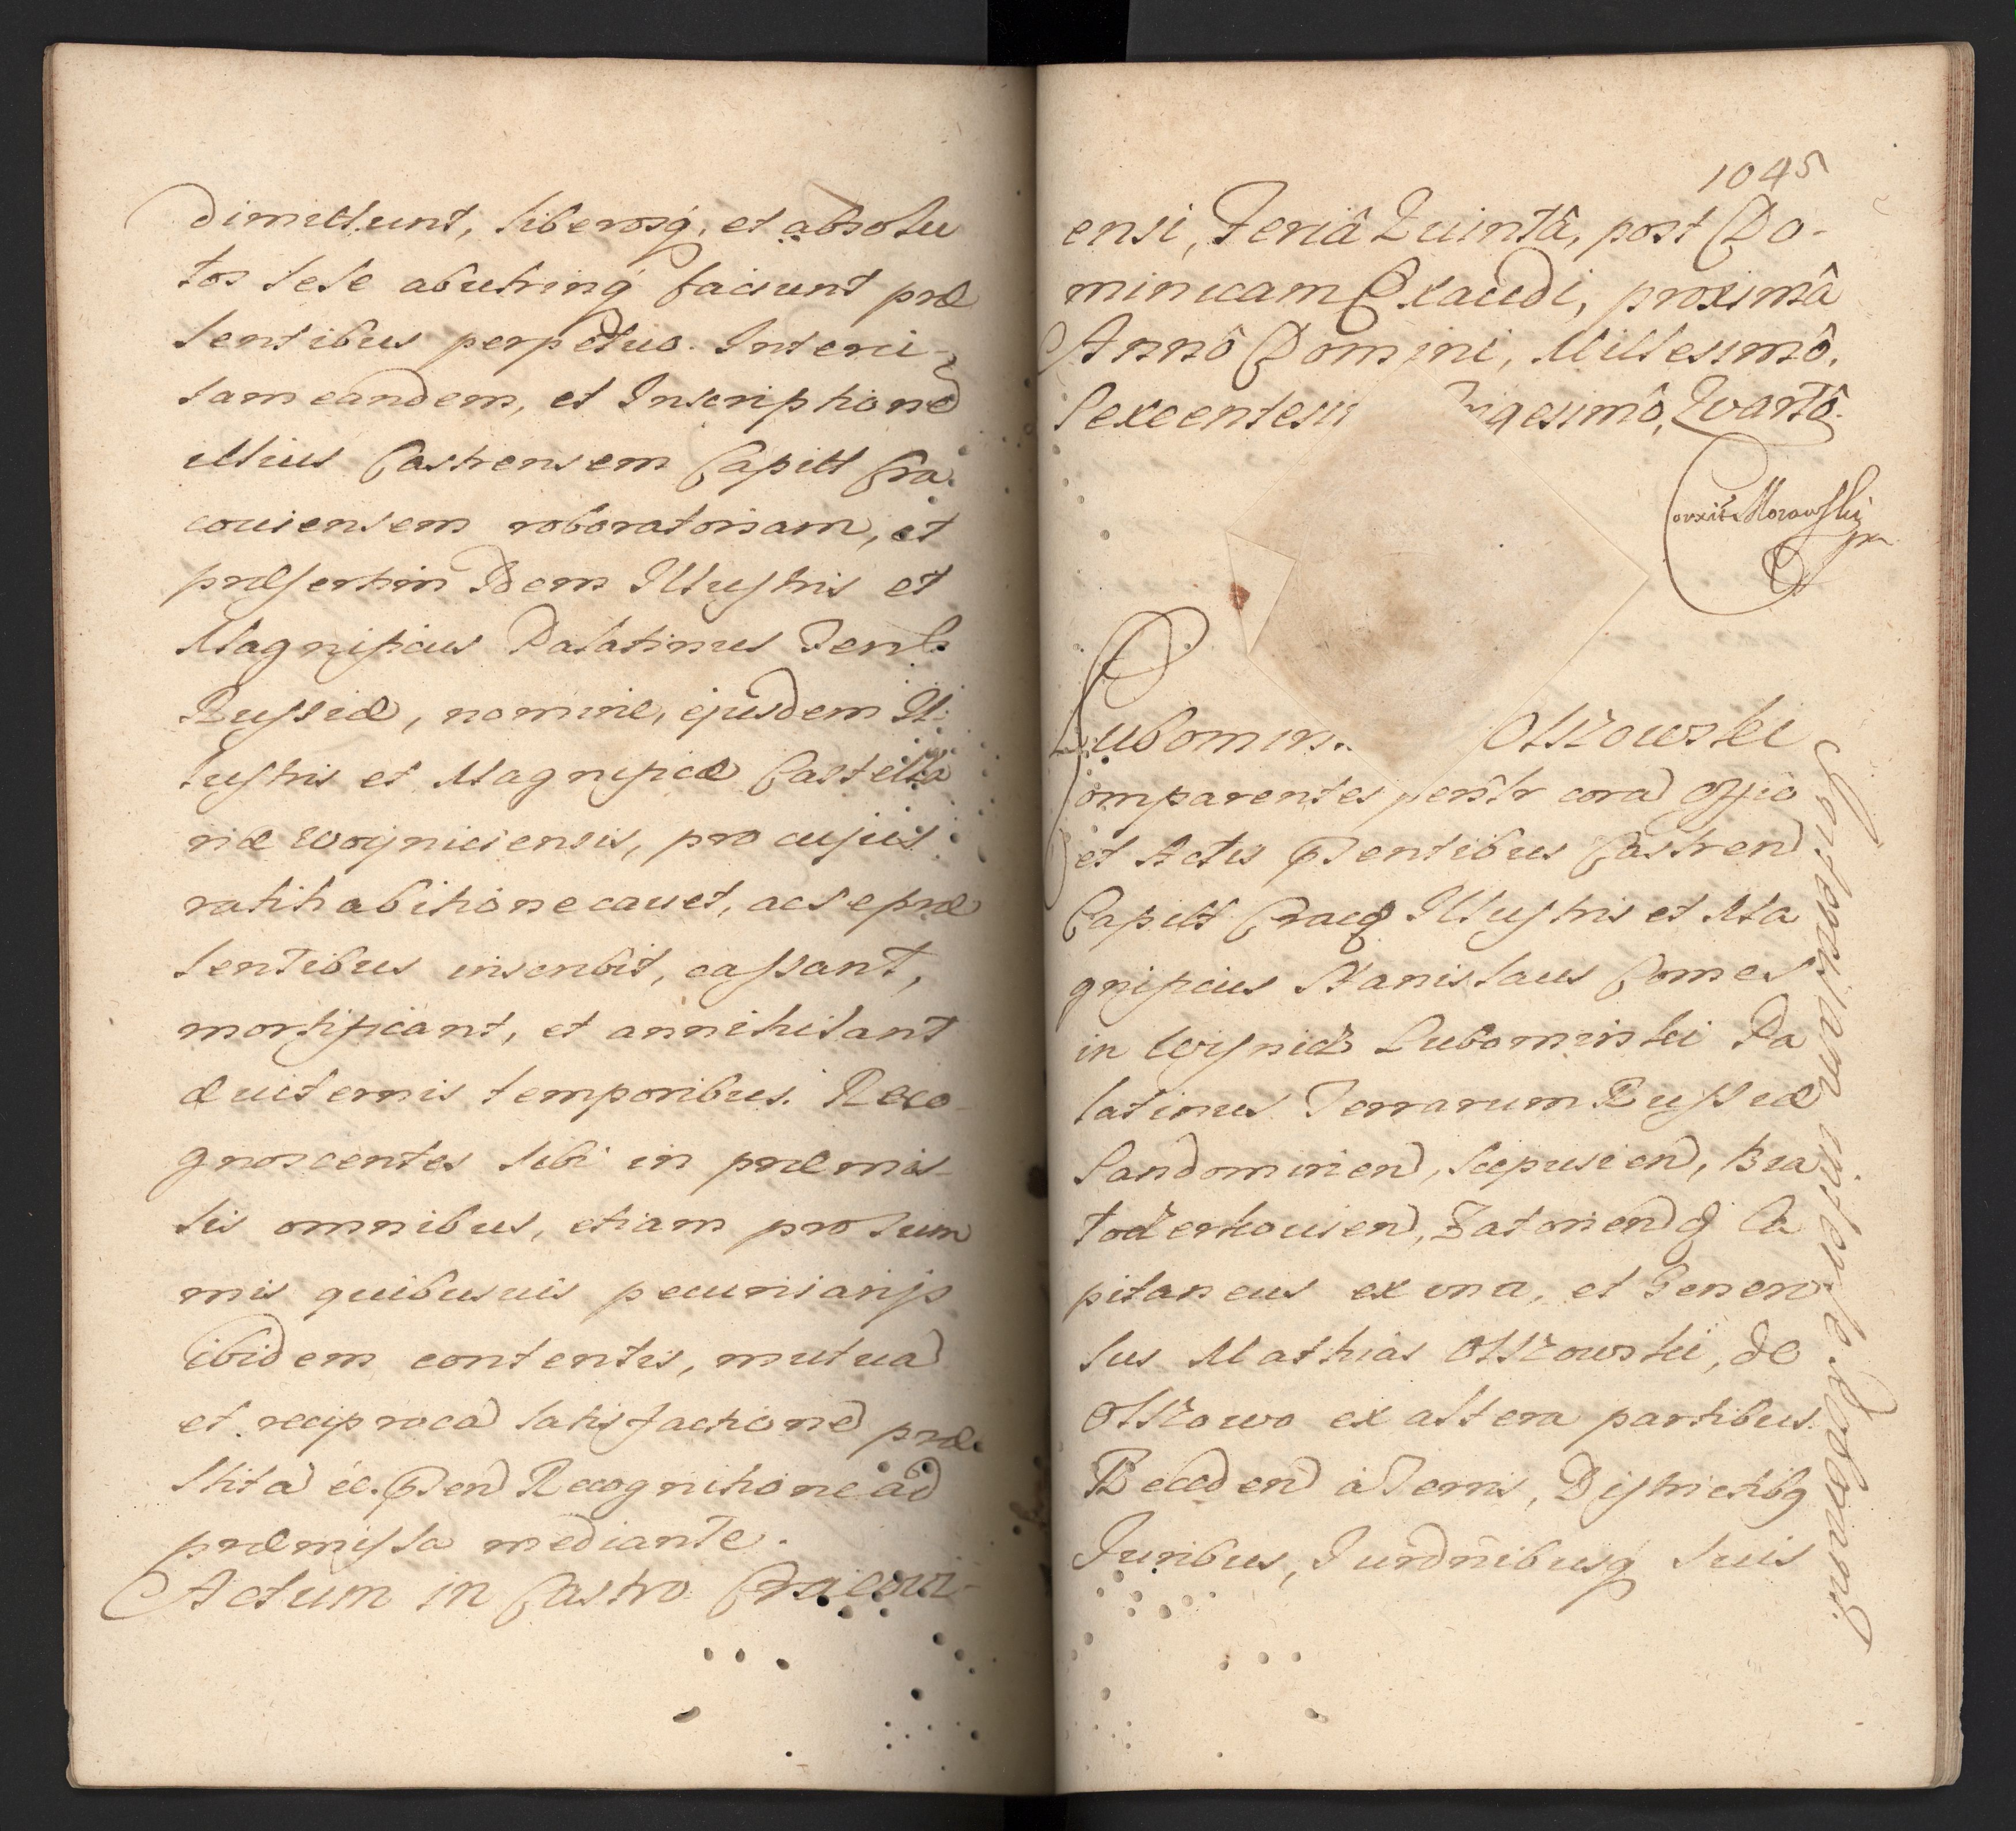 dimittunt, liberosq, et absolu
tos sese abutrinq faciunt præ
sentibus perpetuo. Interci-
sam eandem, et Inscriptione
illius Castrensem Capitt Cra
couiensem roboratoriam, et
præsertim Idem Illustris et
Magnificus Palatinus Terr
Russiæ, nomine, ejusdem Il-
lustris et Magnificæ Castella
næ Woyniciensis, pro cujus
ratihabitione cauet, ac se præ
sentibus inscribit, cassant,
mortificant, et annihilant
æuiternis temporibus. Reco-
gnoscentes sibi in præmis-
sis omnibus, etiam pro sum
mis quibusuis pecuniarijs
ibidem contentis, mutua
et reciproca satisfactione præ
stita ee. pnten Recognitione ad
præmissa mediante.
Actum in Castro Cracoui-
1045
ensi, Feriâ Quintâ, post Do-
minicam Exaudi, proximâ
Annô Domini, Millesimô,
Sexcentesi gesimô, Quartô.
Corxit Morawski
mn
Lubomirs Olszowski
Comparentes persr cora Offio
et Actis pntentibus Castren
Capitt Cracq Illustris et Ma
gnificus Stanislaus Comes
in Wisnicz Lubomirski Pa
latinus Terrarum Russiæ
Sandomirien, Scepusien, Bia
toczerkouien, Zatorienq Ca
pitaneus ex una, et Genero
sus Mathias Olszowski, de
Olszowo ex altera partibus.
Receden a Terris, Districtibq
Juribus, Jurdnibusq suis